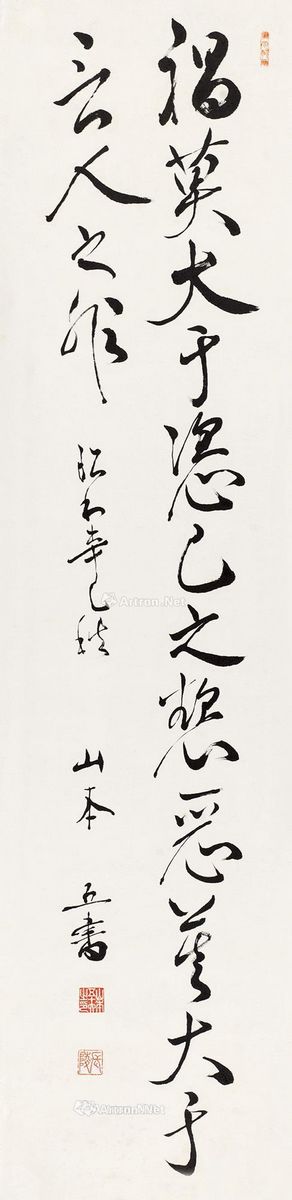 禍莫大于恣己之慾悪莫大于
言人之非
昭和辛巳秋
山本 五書
Artron.Net
Artron.Net